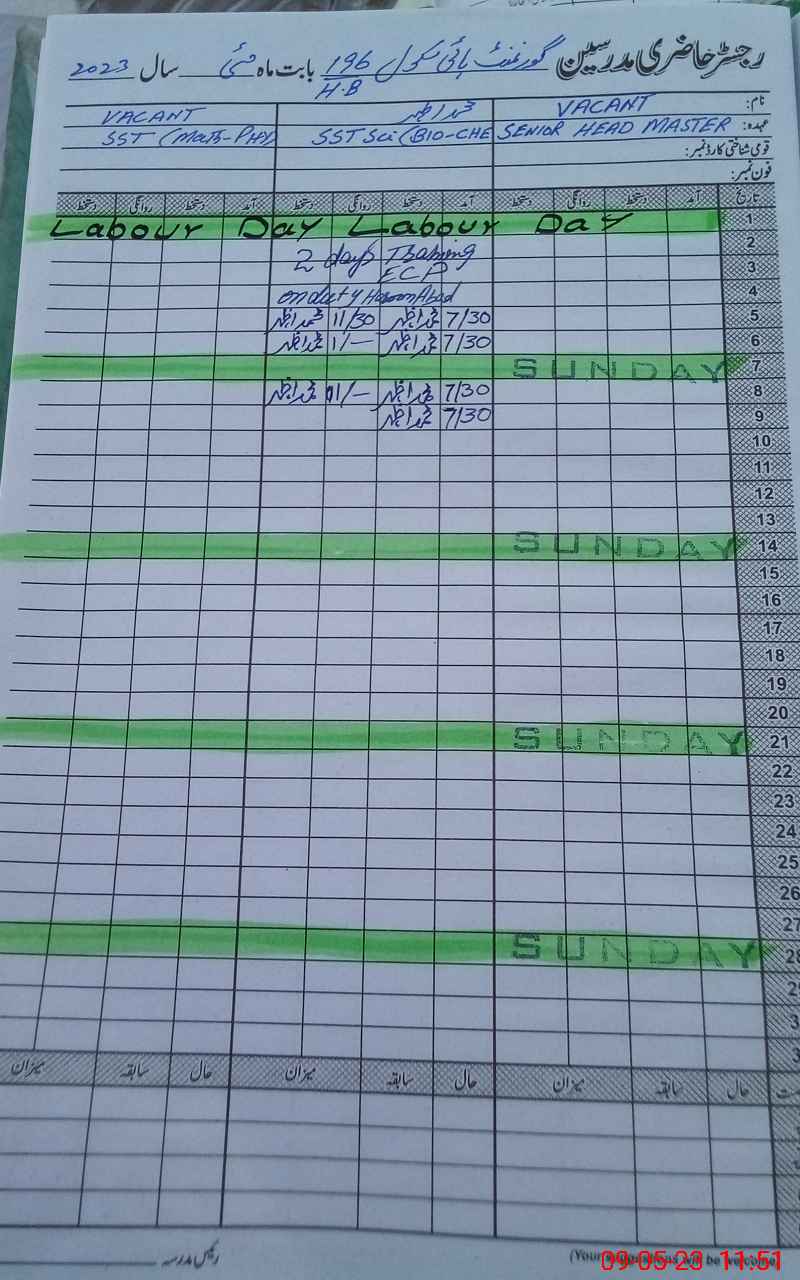 رجسٹر حاضری مدرسین گورنمنٹ ہائی سکول 196 H.B بابت ماہ مئی سال 2023
نام: VACANT محمد اظہر VACANT
عہدہ: SENIOR HEAD MASTER SST Sci (BIO-CHE SST (Math-PHY)
قومی شناختی کارڈ نمبر:
فون نمبر:
تاریخ آمد دستخط روانگی دستخط آمد دستخط روانگی دستخط آمد دستخط روانگی دستخط
1 Labour Day Labour Day
2 2 days Training
3 ECP
4 on duty HaroonAbad
5 7/30 محمد اظہر 11/30 محمد اظہر
6 7/30 محمد اظہر 1/— محمد اظہر
7 SUNDAY
8 7/30 محمد اظہر 01/— محمد اظہر
9 7/30 محمد اظہر
10
11
12
13
14 SUNDAY
15
16
17
18
19
20
21 SUNDAY
22
23
24
25
26
27
28 SUNDAY
حال سابقہ میزان حال سابقہ میزان حال سابقہ میزان
رئیس مدرسہ
(Your suggestions will be welcome)
09-05-23 11:51